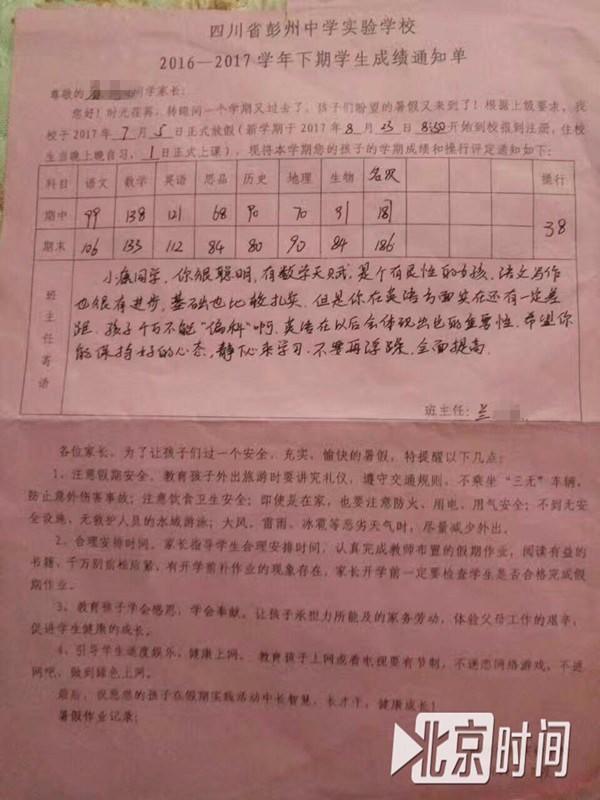 四川省彭州中学实验学校
2016—2017学年下期学生成绩通知单
尊敬的 同学家长:
您好!时光荏苒,转眼间一个学期又过去了,孩子们盼望的暑假又来到了!根据上级要求,我
校于2017年7月5日正式放假(新学期于2017年8月23日8:50开始到校报到注册,住校
生当晚上晚自习, 1日正式上课),现将本学期您的孩子的学期成绩和操行评定通知如下:
科目 语文 数学 英语 思品 历史 地理 生物 名次 操行
期中 99 138 121 68 90 70 91 181 38
期末 106 133 112 84 80 90 84 186
班主任寄语
小 同学,你很聪明,有数学天赋,是个有灵性的女孩,语文写作
也很有进步,基础也比较扎实.但是你在英语方面实在还有一定差
距,孩子千万不能“偏科”啊.英语在以后会体现出它的重要性.希望你
能保持好的心态,静下心来学习.不要再浮躁.全面提高.
班主任:兰
各位家长,为了让孩子们过一个安全、充实、愉快的暑假,特提醒以下几点:
1、注意假期安全。教育孩子外出旅游时要讲究礼仪,遵守交通规则,不乘坐“三无”车辆,
防止意外伤害事故;注意饮食卫生安全;即使是在家,也要注意防火、用电、用气安全;不到无安
全设施、无救护人员的水域游泳;大风、雷雨、冰雹等恶劣天气时,尽量减少外出。
2、合理安排时间。家长指导学生合理安排时间,认真完成教师布置的假期作业,阅读有益的
书籍,千万别前松后紧,有开学前补作业的现象存在,家长开学前一定要检查学生是否合格完成假
期作业。
3、教育孩子学会感恩,学会奉献。让孩子承担力所能及的家务劳动,体验父母工作的艰辛,
促进学生健康的成长。
4、引导学生适度娱乐、健康上网。教育孩子上网或看电视要有节制,不迷恋网络游戏,不进
网吧,做到绿色上网。
最后,祝您您的孩子在假期实践活动中长智慧,长才干,健康成长!
暑假作业记录:
北京时间